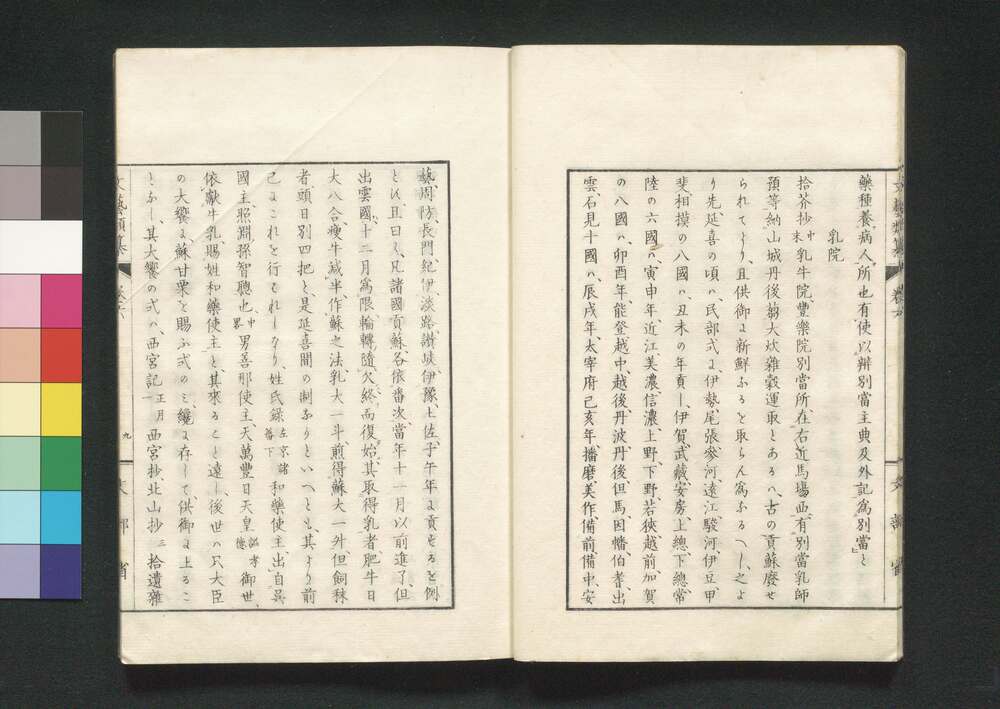 藥種養病人所也有使以辨別當主典及外記爲別當」と
乳院
拾芥抄中末乳牛院豐樂院別當所在右近馬場西有別當乳師
預等納山城丹後芻大炊雜穀運取とあるハ、古の貢蘇廢せ
られてより、且供御に新鮮なるを取らん爲なるへし、之よ
り先延喜の頃ハ、民部式に、伊勢、尾張、參河、遠江、駿河、伊豆、甲
斐、相摸の八國ハ、丑未の年貢し、伊賀、武藏、安房、上總、下總、常
陸の六國ハ、寅申年、近江、美濃、信濃、上野、下野、若狹、越前、加賀
の八國ハ、卯酉年、能登、越中、越後、丹波、丹後、但馬、因幡、伯耆、出
雲、石見十國ハ、辰戌年、太宰府、已亥年、播磨、美作、備前、備中、安
藝、周防、長門、紀伊、淡路、讃岐、伊豫、土佐、子午年に貢せるを例
とし、且曰く、凡諸國貢蘇各依番次、當年十一月以前進了、但
出雲國、十二月爲限、輪轉隨次、終而復始、其取得乳者、肥牛日
大八合、瘦牛減半、作蘇之法、乳大一斗煎得蘇大一升、但飼秣
者頭日別四把と、是延喜間の制なりといへとも、其より前
已にこれを行せれしなり、姓氏錄左京諸蕃下和藥使主、出自吳
國主、照淵孫智聰也、中畧男善那使主、天萬豐日天皇謚孝德御世、
依獻牛乳、賜姓和藥使主と、其來ること遠し、後世ハ只大臣
の大饗に、蘇甘栗を賜ふ式のミ纔に存して、供御に上るこ
となし、其大饗の式ハ、西宮記正月一西宮抄、北山抄三拾遺雜
文藝類纂 卷六
九
文部省
文藝類纂 卷六
文部省